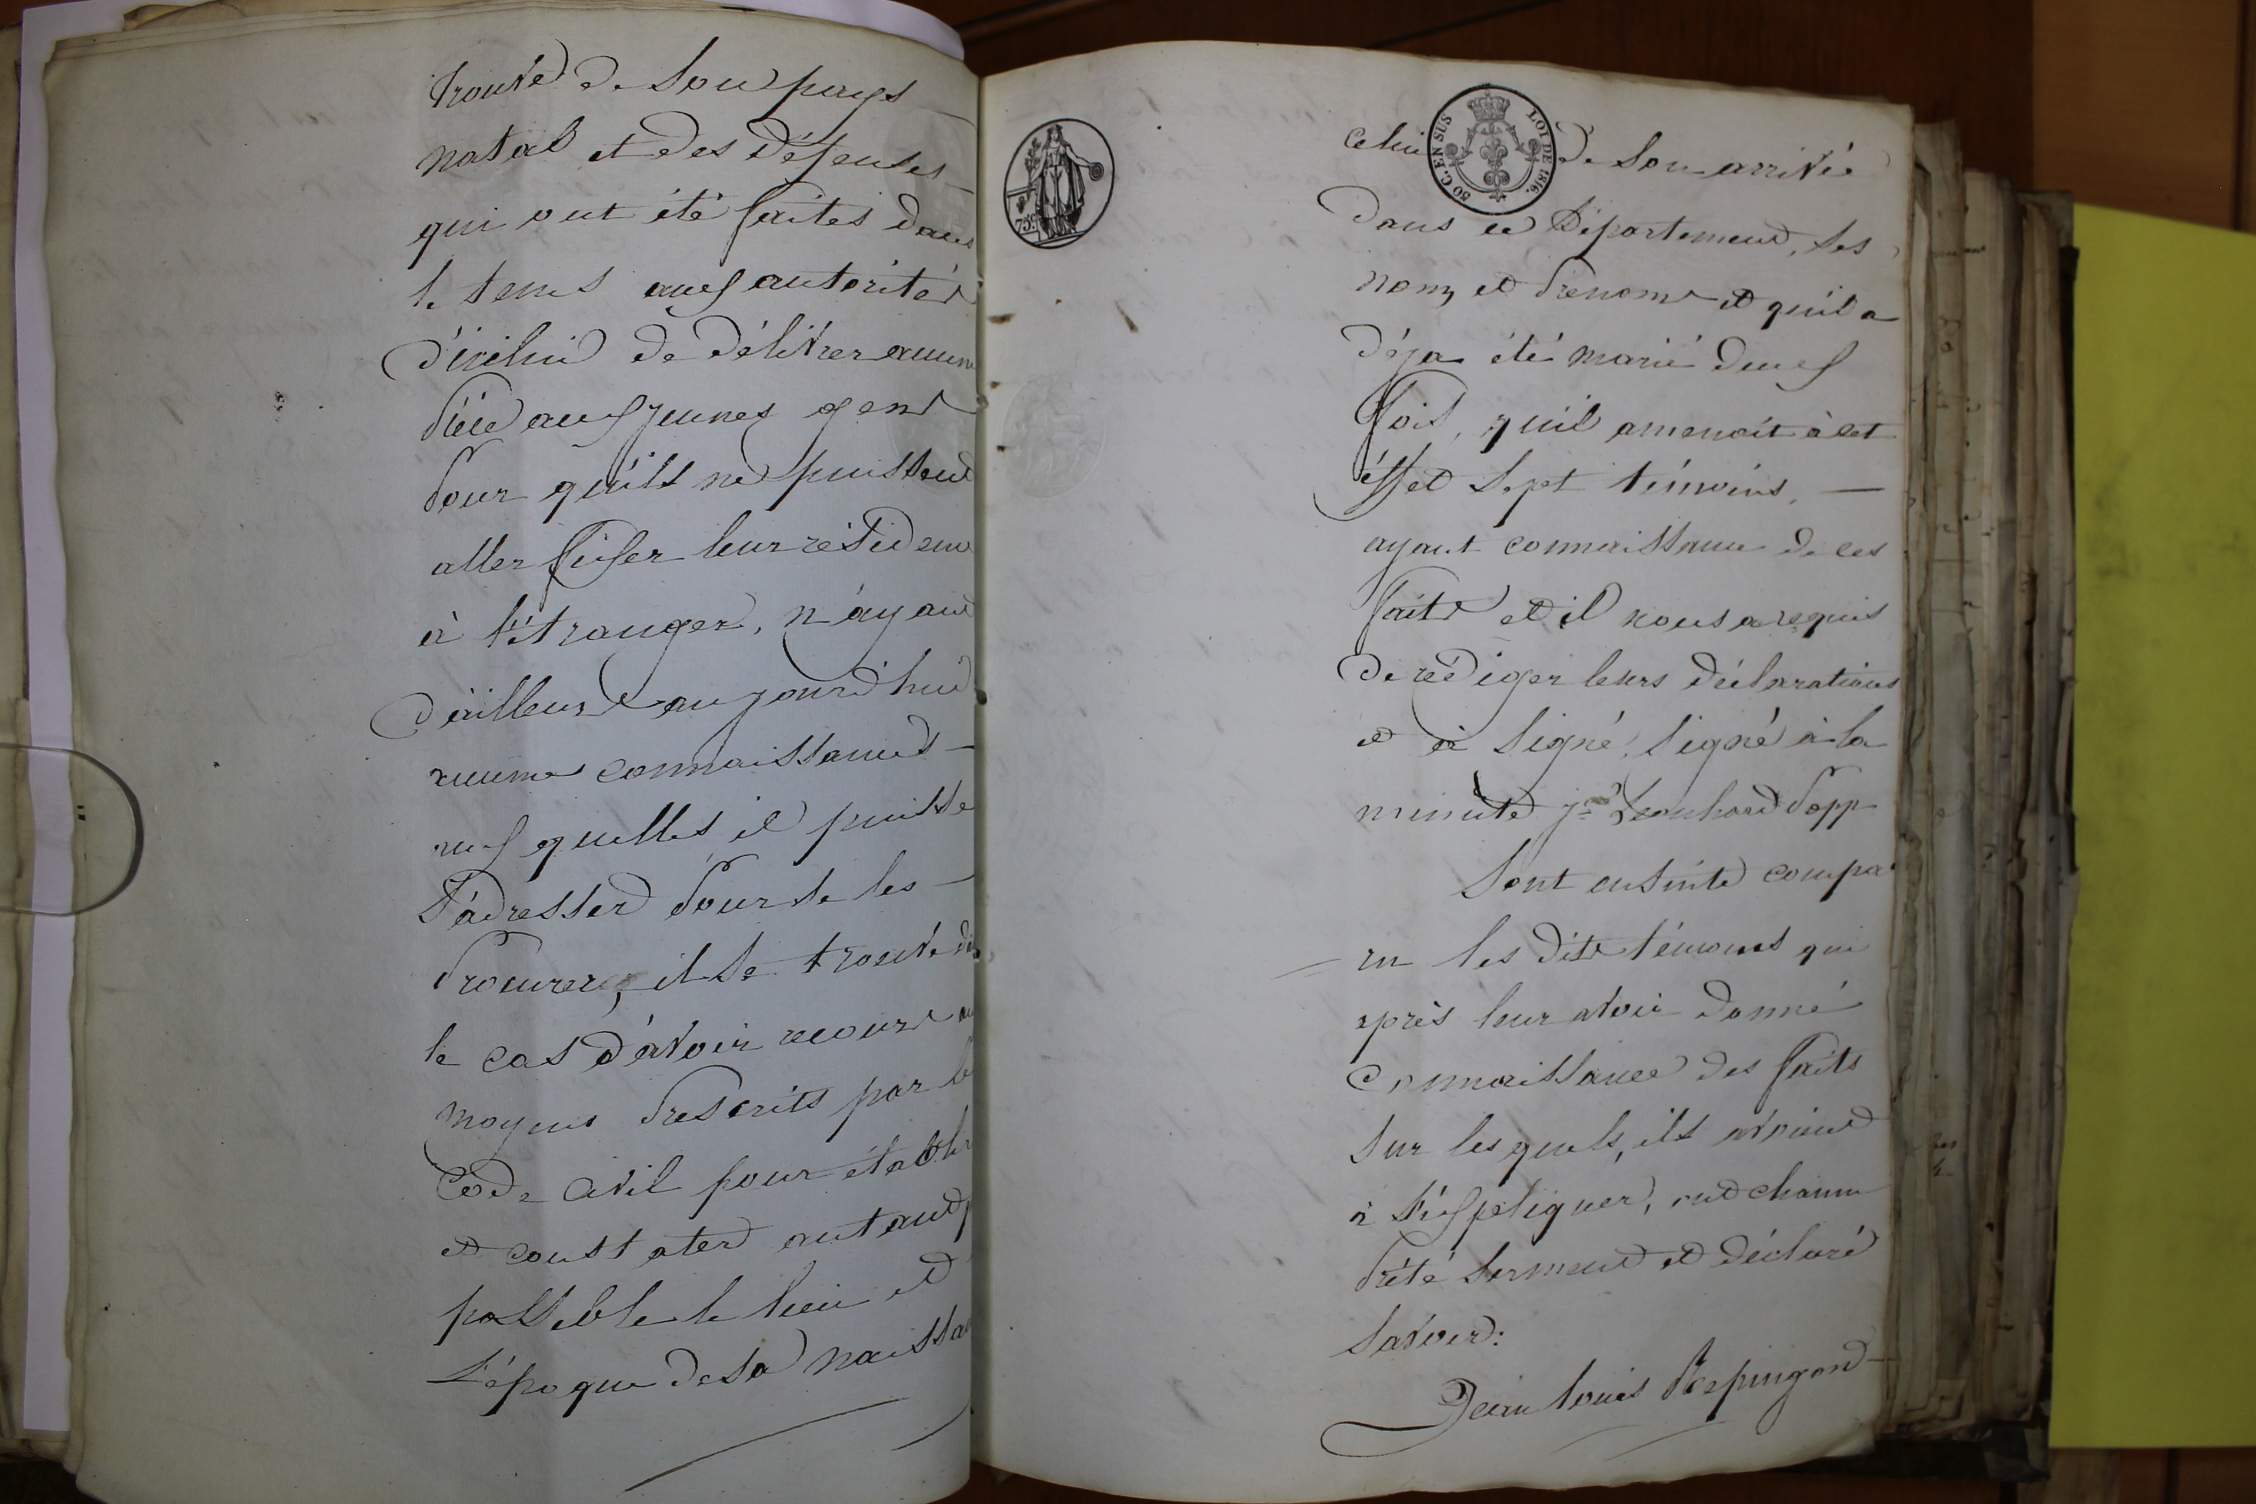 trouvé de Son pays
natal et des défenses
qui ont été faites dans
le tems aux autorités
d'icelui de délivrer aucune
Pièce aux jeunes gens
Pour qu'ils ne puissent
aller fixer leur residence
à l'étranger, n'ayant
d'ailleurs aujourd'hui
aucune connaissances
aux quelles il puisse
S'adresser Pour se les
Procurer, il se trouve
le cas d'avoir recours
moyens Prescrits par
Code Civil pour établir
et constater autant
possible le lieu et
L'époque de sa naissa
75c.
50 C. EN SUS LOI DE 1816.
celui de Son arrivée
dans ce Département, Ses
nom, et Prenoms et qu'il a
déja été marié deux
fois, qu'il amenoit à cet
éffet Sept témoins,
ayant connaissance de ces
faits et il nous a requis
de rédiger leurs déclarations
et à Signé, Signé à la
minute Jn Leonhard Popp
Sont ensuite compa
ru les dits témoins qui
après leur avoir donné
Connaissance des faits
Sur lesquels, ils avoient
à S'expliquer, ont chacun
Prêté Serment et déclaré
Savoir:
Jean Louis